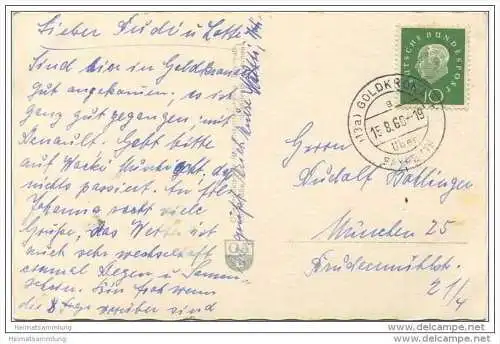 Lieber Rudi u Lotte
Sind hier in Goldkronach
gut angekommen, es ist
ganz gut gegangen, mit
Renault. Gebt bitte
auf Wacki acht, das
nichts passiert. An Frl.
sagt viele
Grüße, das Wetter ist
auch sehr wechselhaft
einmal Regen u Sonnen-
schein. Bin froh wenn
die 8 Tage vorüber sind
grüßt Euch Eure
DEUTSCHE BUNDESPOST
10
(13a) GOLDKRONACH
a
15.8.60-18
über
BAYREUTH
Herrn
Rudolf Dollinger
München 25
21/4
Heimatsammlung
Heimatsammlung.com
www.delcampe.net